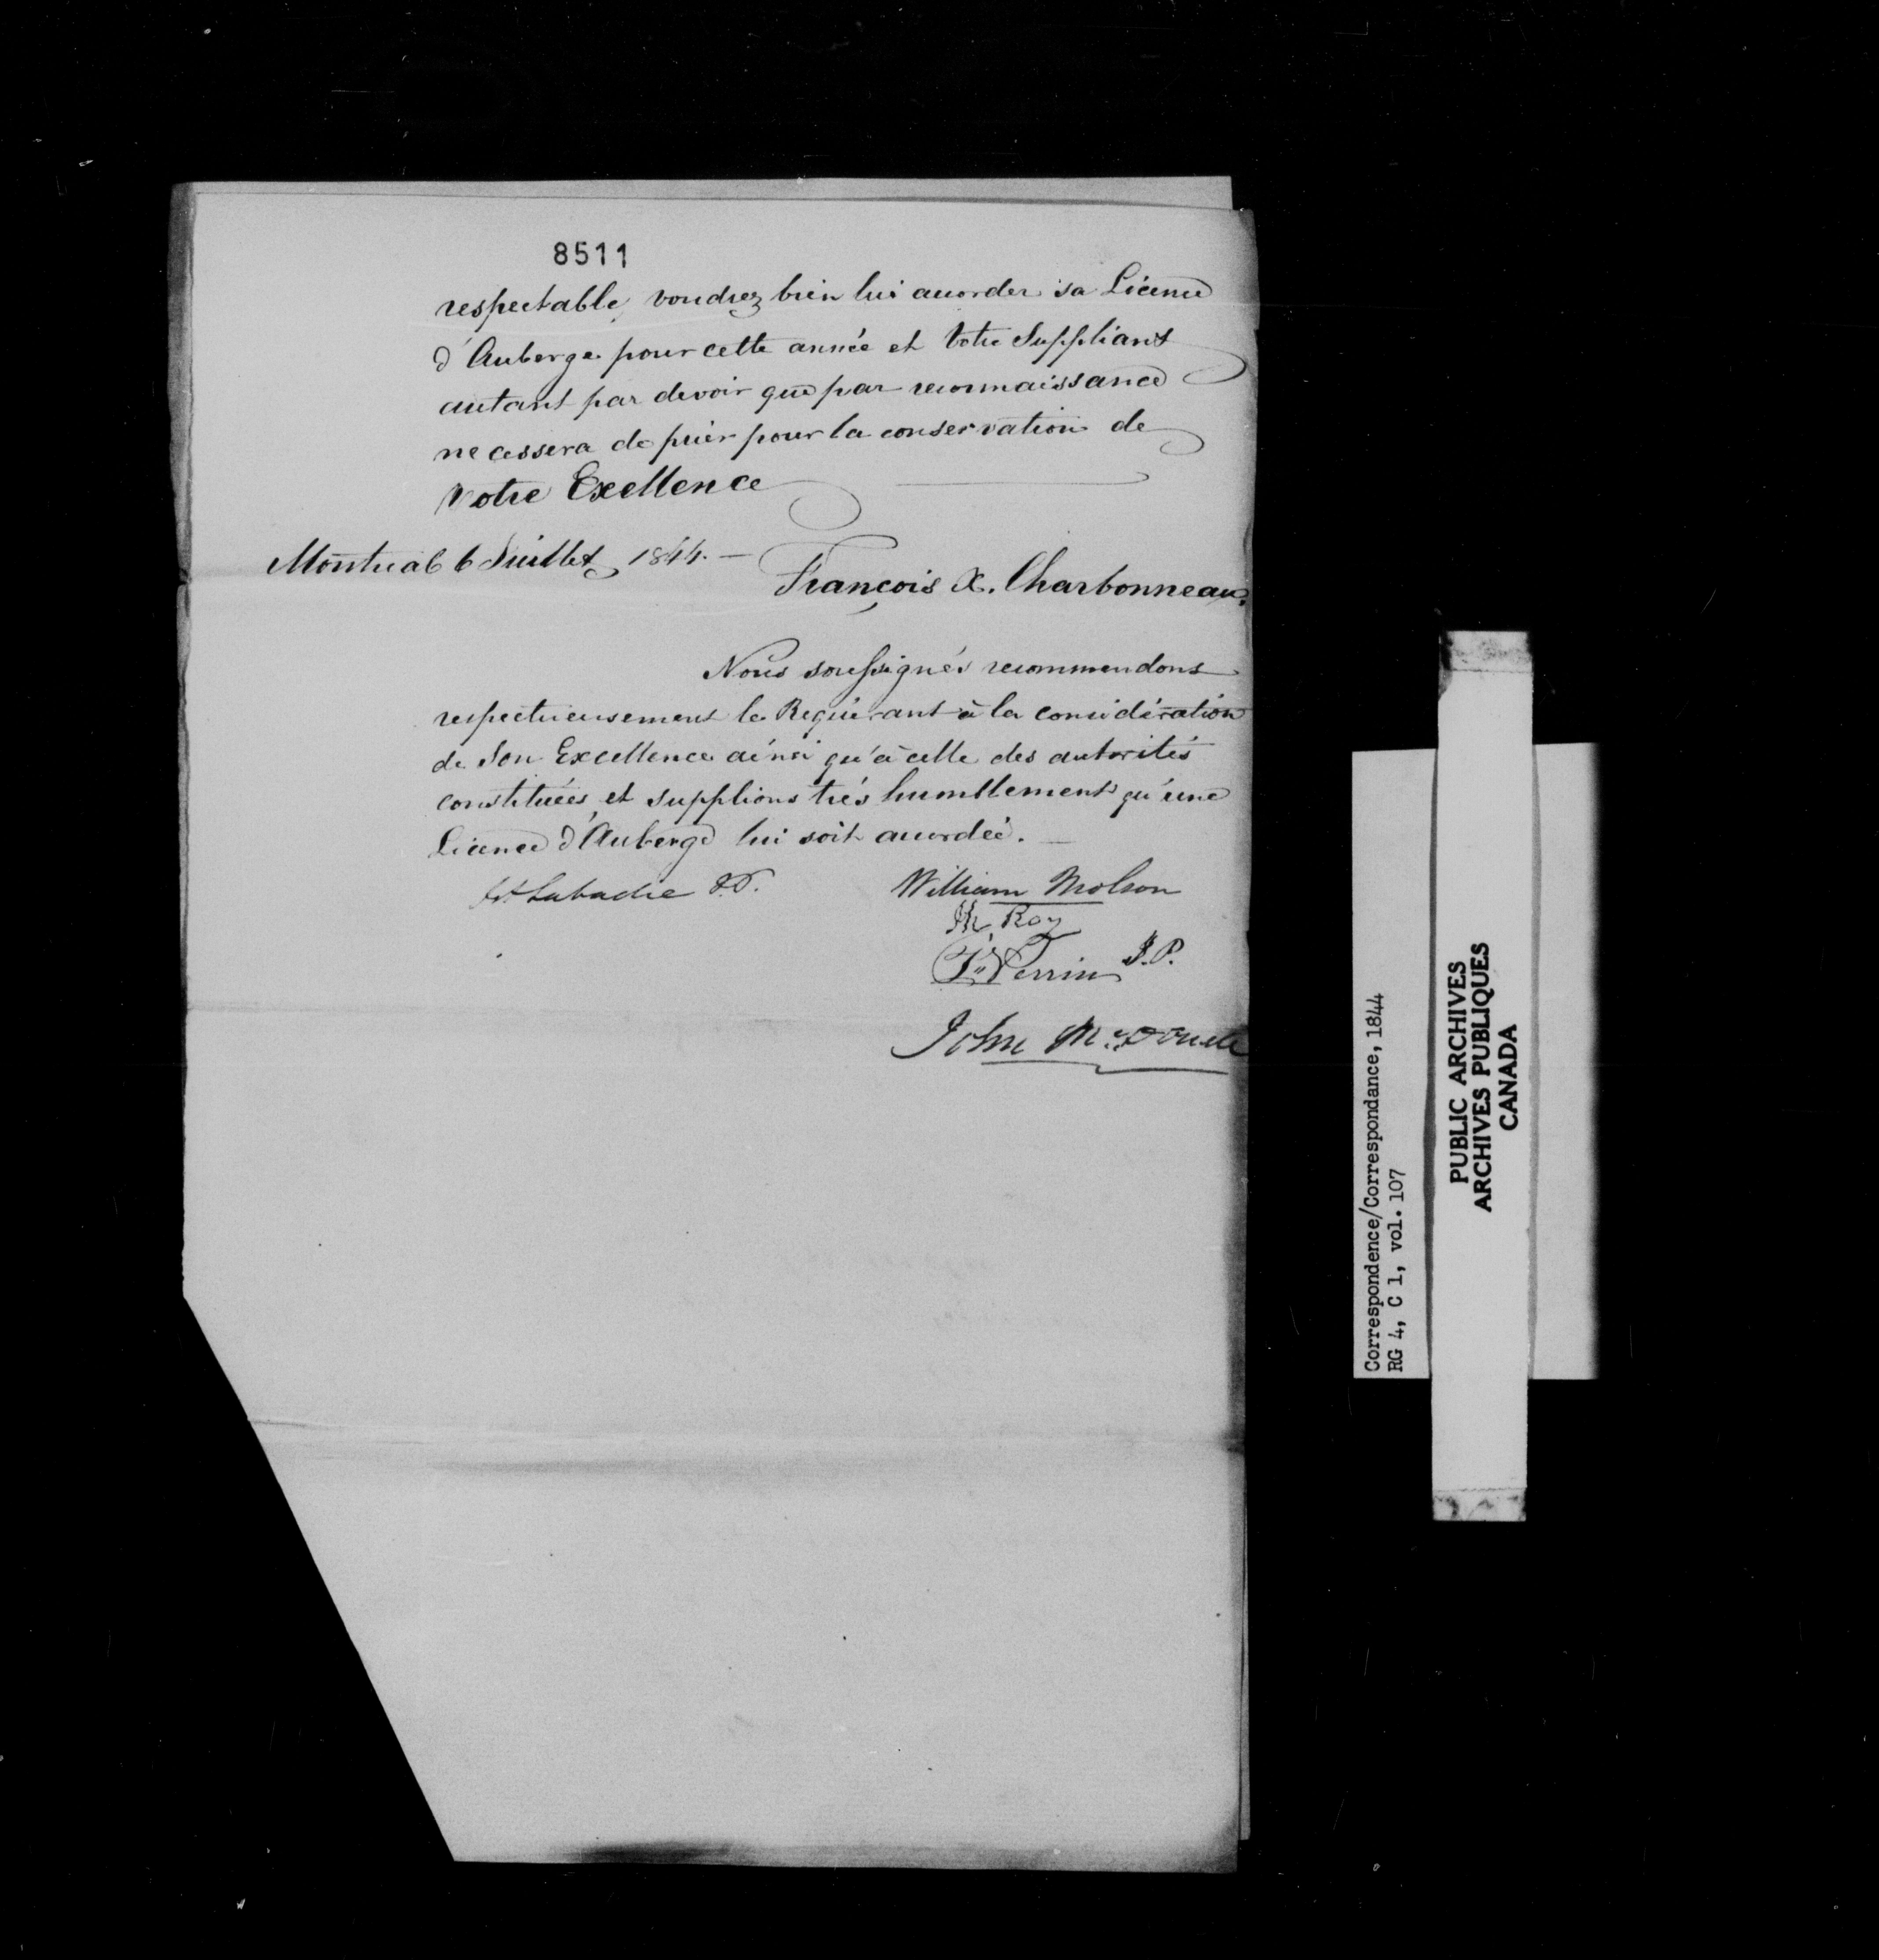 8511
respectable, voudrez bien lui accorder sa Licence
d'Auberge pour cette année et Votre Suppliant
autant par devoir que par reconnaissance
ne cessera de prier pour la conservation de
Votre Exellence
Montreal 6 Juillet 1844. —
François X. Charbonneau.
Nous soussignés recommendons
respectueusement le Requérant à la considération
de Son Excellence ainsi qu'à celle des autorités
constituées, et supplions très humblement qu'une
Licence d'Auberge lui soit accordée. —
Labadie
William Molson
Roy
Perrin J.P.
John
Correspondence/Correspondance, 1844
RG 4, C 1, vol. 107
PUBLIC ARCHIVES
ARCHIVES PUBLIQUES
CANADA